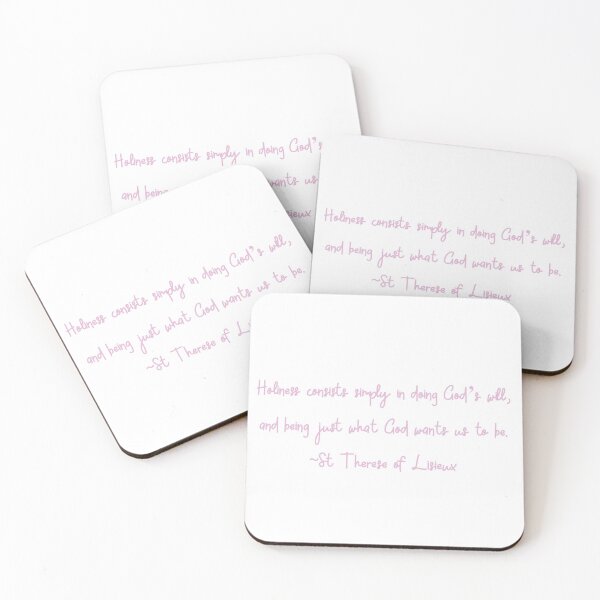 Holiness consists simply in doing God"s
and being
wants us
Holiness consists simply in doing God"s will,
and being just what God wants us to be.
~St Therese of Lisieux
Holiness consists simply in doing God"s will,
and being just what God wants us to be.
~St Therese of
Holiness consists simply in doing God"s will,
and being just what God wants us to be.
~St Therese of Lisieux